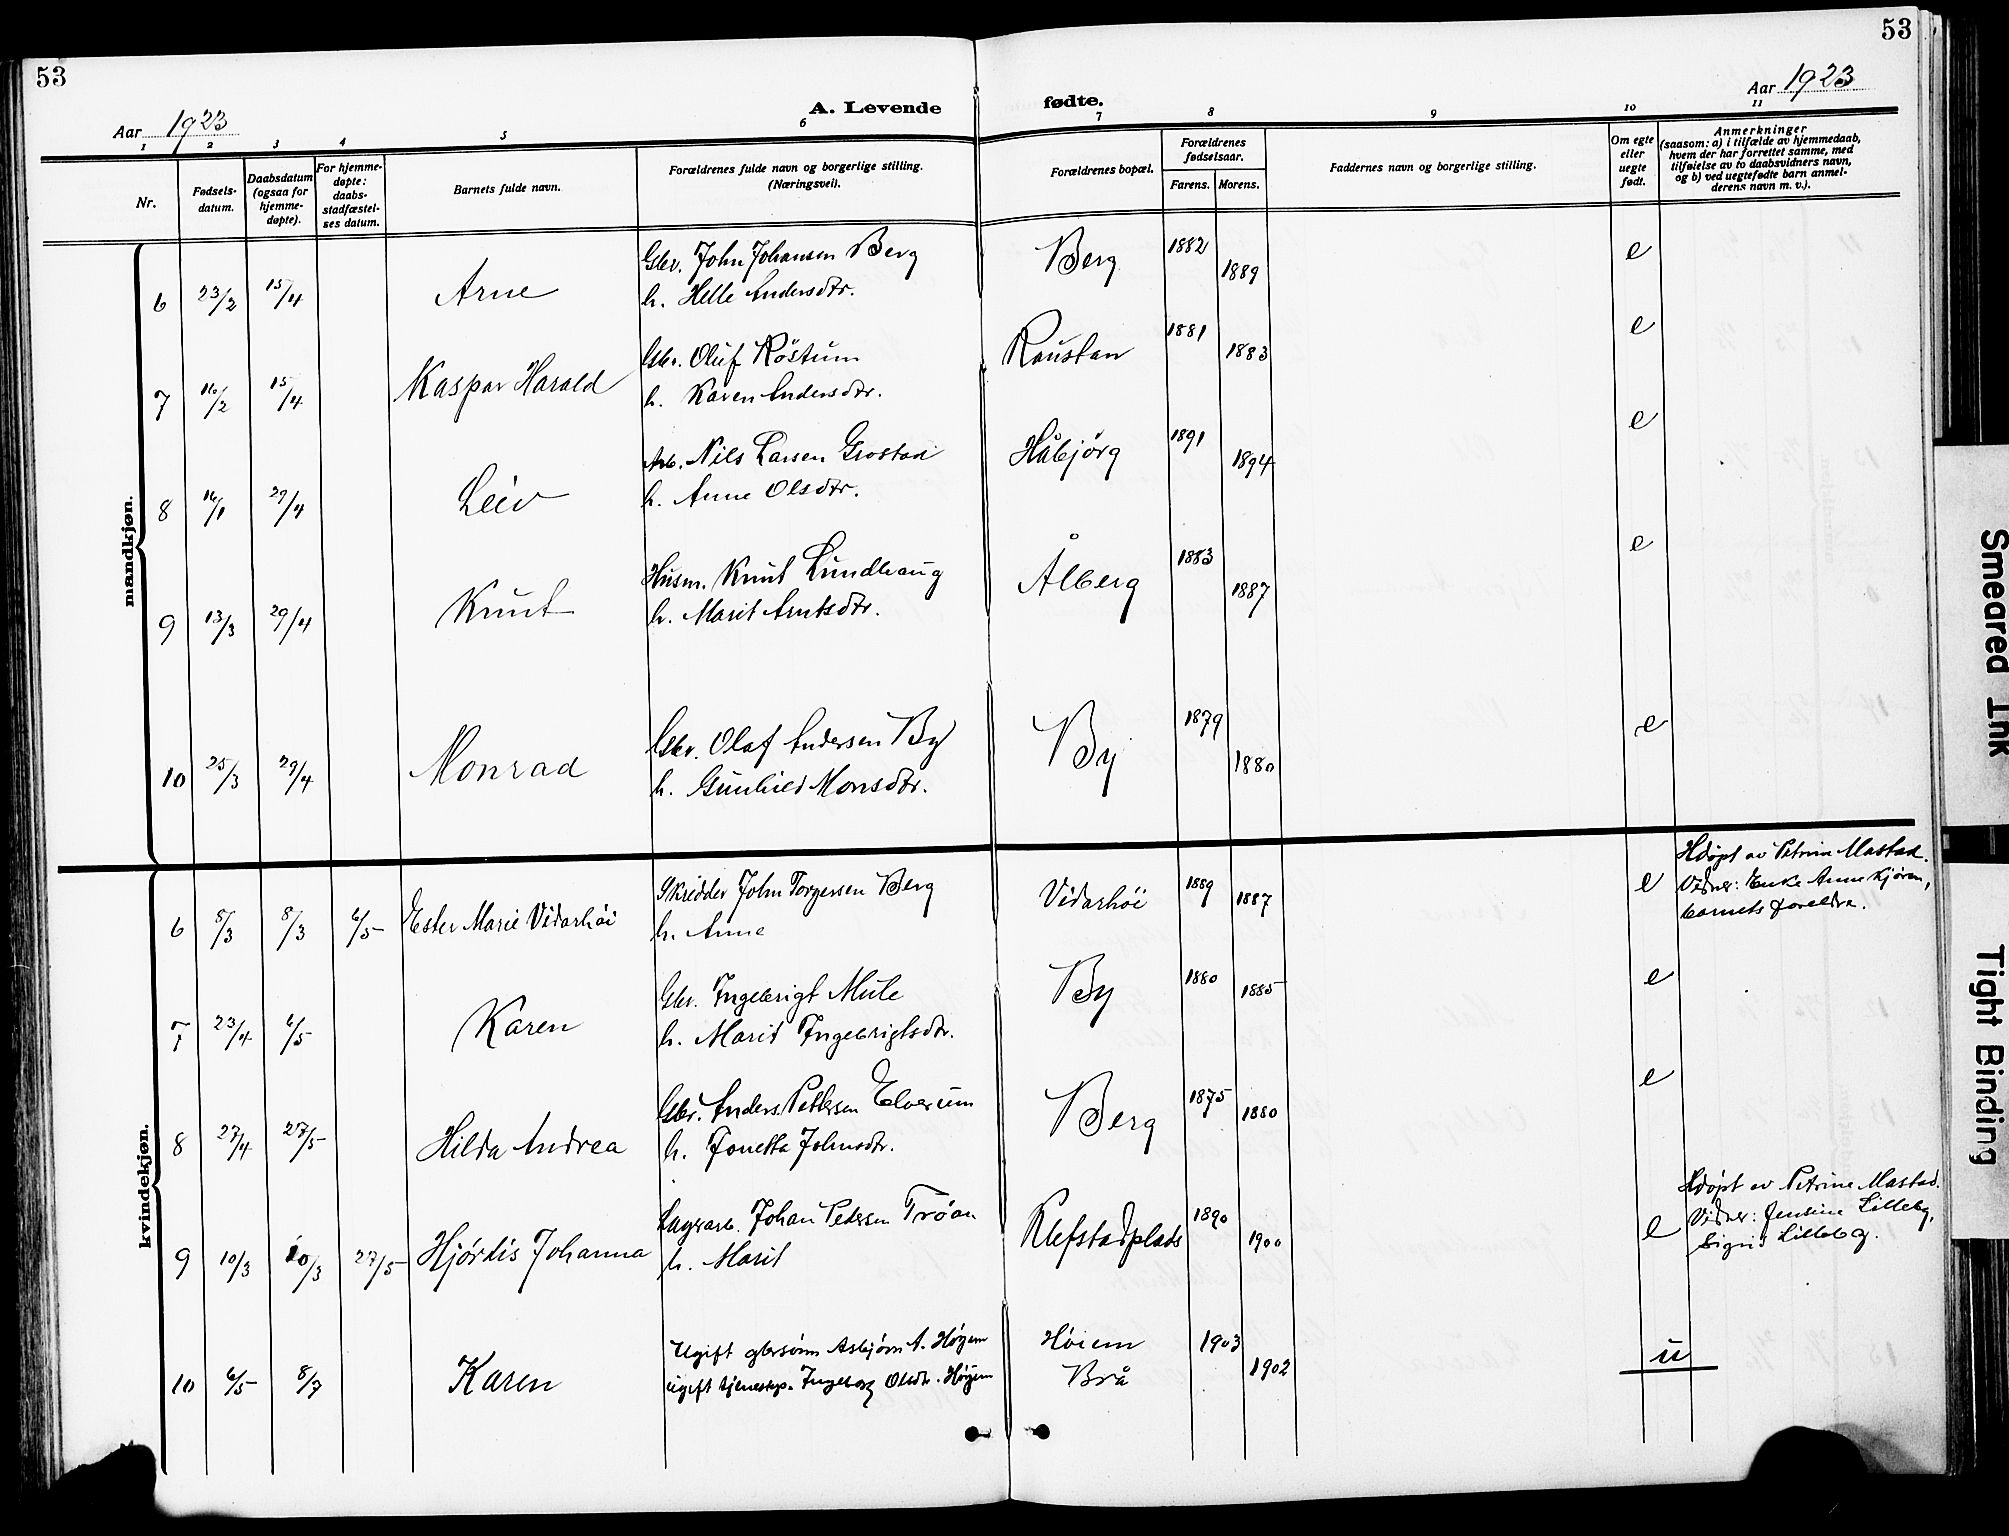 53
53
Aar 1923
A. Levende fødte.
Aar 1923
1 2 3 4 5 6 7 8 9 10 11
Nr.
Fødsels-
datum.
Daabsdatum
(ogsaa for
hjemme-
døpte).
For hjemme-
døpte:
daabs-
stadfæstel-
ses datum.
Barnets fulde navn.
Forældrenes fulde navn og borgerlige stilling.
(Næringsvei).
Forældrenes bopæl.
Forældrenes
fødselsaar.
Farens. Morens.
Faddernes navn og borgerlige stilling.
Om egte
eller
uegte
født.
Anmerkninger
(saasom: a) i tilfælde av hjemmedaab,
hvem der har forrettet samme, med
tilføielse av to daabsvidners navn,
og b) ved uegtefødte barn anmel-
derens navn m. v.).
mandkjøn.
6 23/2 15/4 Arne Gbr. John Johansen Berg Berg 1882 1889 e
h. Helle Andersdtr.
7 16/2 15/4 Kaspar Harald Gbr. Oluf Röstum Raustan 1881 1883 e
h. Karen Andersdtr.
8 16/1 29/4 Leiv Arb. Nils Larsen Grostad Håbjørg 1891 1894 e
h. Anne Olsdtr.
9 13/3 29/4 Knut Husm. Knut Lundhaug Ålberg 1883 1887 e
h. Marit Arntsdtr.
10 25/3 29/4 Monrad Gbr. Olaf Andersen By By 1879 1880 e
h. Gunhild Monsdtr.
kvindekjøn.
6 5/3 8/3 6/5 Ester Marie Vidarhöi Skrædder John Torgersen Berg Vidarhöi 1889 1887 e Hdøpt av Petrine Mastad.
h. Anne Vidner: Enke Anne Kjøren,
barnets foreldre.
7 23/4 6/5 Karen Gbr. Ingebrigt Mule By 1880 1885 e
h. Marit Ingebrigtsdtr.
8 27/4 27/5 Hilda Andrea Gbr. Anders Pettersen Elverum Berg 1875 1880 e
h. Jonetta Johnsdtr.
9 10/3 10/3 27/5 Hjördis Johanna Lagerarb. Johan Pedersen Tröan Klefstadplads 1890 1900 e Hdøpt av Petrine Mastad.
h. Marit Vidner: Jensine Lilleby,
Sigrid Lilleby.
10 6/5 8/7 Karen Ugift gbrsønn Asbjørn A. Høyem Höiem 1903 1902 u
ugift tjenestep. Ingeborg Olsdtr. Høyem Brå
Smeared Ink
Tight Binding